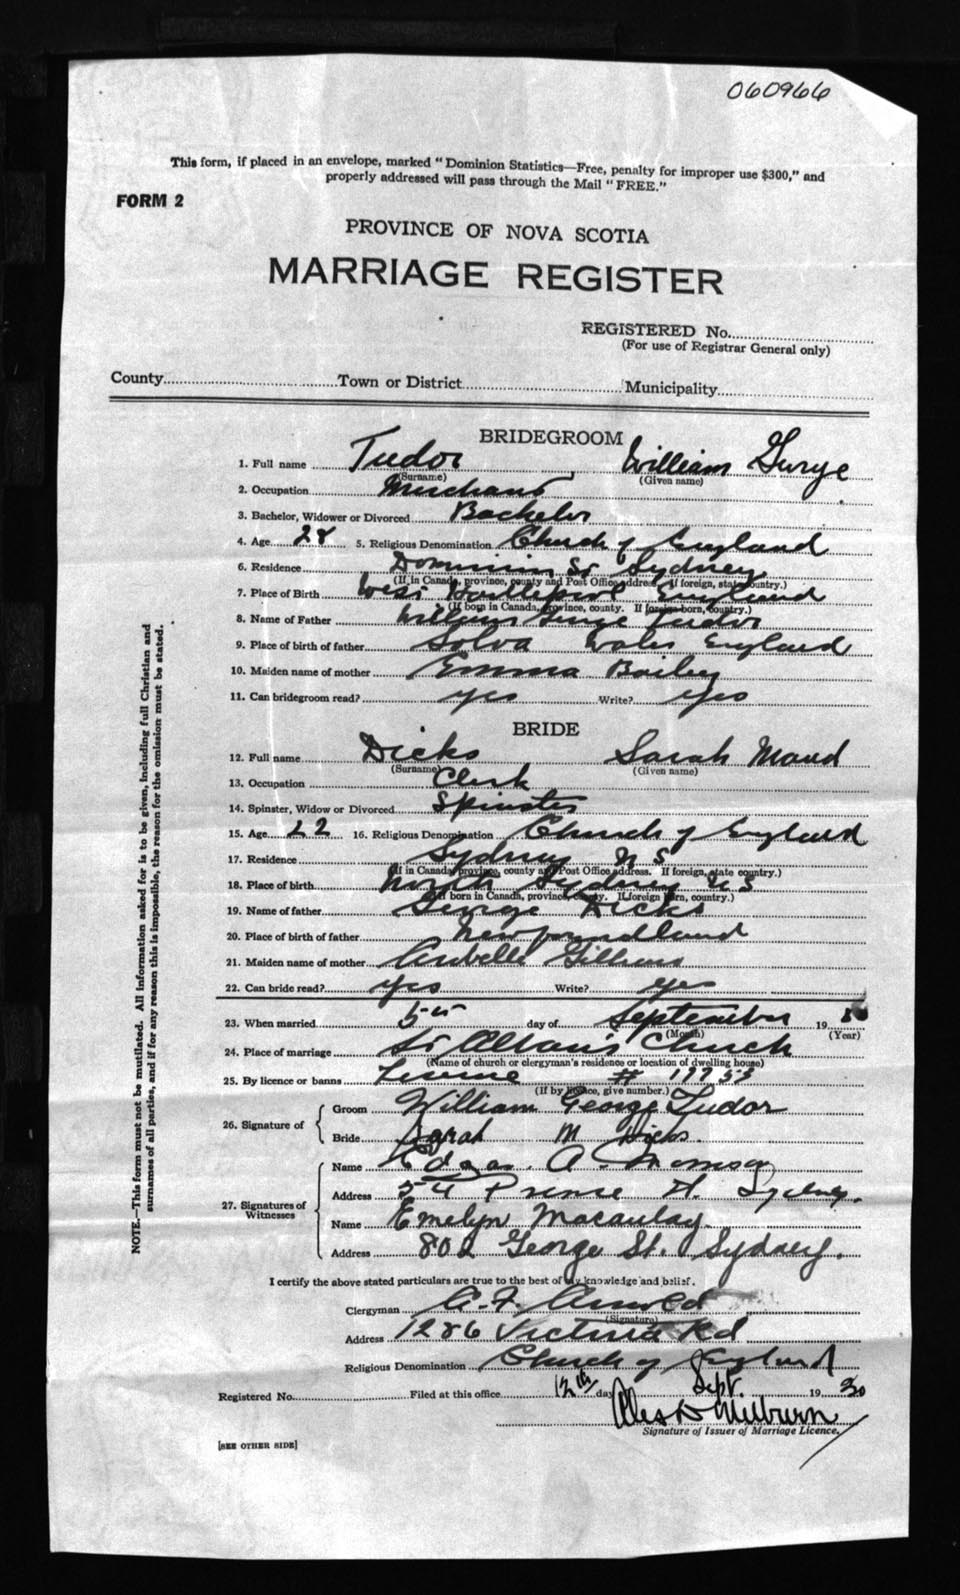 060966
This form, if placed in an envelope, marked "Dominion Statistics—Free, penalty for improper use $300," and
properly addressed will pass through the Mail "FREE."
FORM 2
PROVINCE OF NOVA SCOTIA
MARRIAGE REGISTER
REGISTERED No.
(For use of Registrar General only)
County Town or District Municipality
BRIDEGROOM
1. Full name Tudor William George
(Surname) (Given name)
2. Occupation Merchant
3. Bachelor, Widower or Divorced Bachelor
4. Age 28 5. Religious Denomination Church of England
6. Residence Dominion St Sydney
(If in Canada, province, county and Post Office address. If foreign, state country.)
7. Place of Birth West Hartlepool England
(If born in Canada, province, county. If foreign born, country.)
8. Name of Father William George Tudor
9. Place of birth of father Solva Wales England
10. Maiden name of mother Emma Bailey
11. Can bridegroom read? yes Write? yes
BRIDE
12. Full name Dicks Sarah Maud
(Surname) (Given name)
13. Occupation Clerk
14. Spinster, Widow or Divorced Spinster
15. Age 22 16. Religious Denomination Church of England
17. Residence Sydney N S
(If in Canada, province, county and Post Office address. If foreign, state country.)
18. Place of birth North Sydney N S
(If born in Canada, province, county. If foreign born, country.)
19. Name of father George Dicks
20. Place of birth of father Newfoundland
21. Maiden name of mother
22. Can bride read? yes Write? yes
23. When married 5th day of September 19 30
(Month) (Year)
24. Place of marriage St Alban's Church
(Name of church or clergyman's residence or location of dwelling house)
25. By licence or banns License #
(If by licence, give number.)
26. Signature of Groom William George Tudor
Bride Sarah M Dicks.
27. Signatures of Witnesses Name Edgar. A.
Address 54 Prince St. Sydney.
Name Emelyn Macaulay.
Address 802 George St. Sydney.
I certify the above stated particulars are true to the best of my knowledge and belief.
Clergyman A. F. Arnold
(Signature)
Address 1286 Victoria Rd
Religious Denomination Church of England
Registered No. Filed at this office 12th day Sept. 19 30
Milburn
Signature of Issuer of Marriage Licence.
[SEE OTHER SIDE]
NOTE.—This form must not be mutilated. All information asked for is to be given, including full Christian and
surnames of all parties, and if for any reason this is impossible, the reason for the omission must be stated.